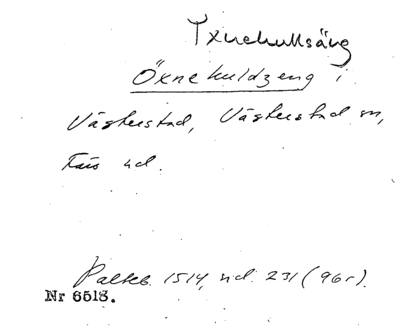 Yxnehultsäng
Öxnehuldzeng i
Västerstad, Västerstad sn,
Färs hd.
Palteb. 1514, sid. 231 (96r).
Nr 6518.